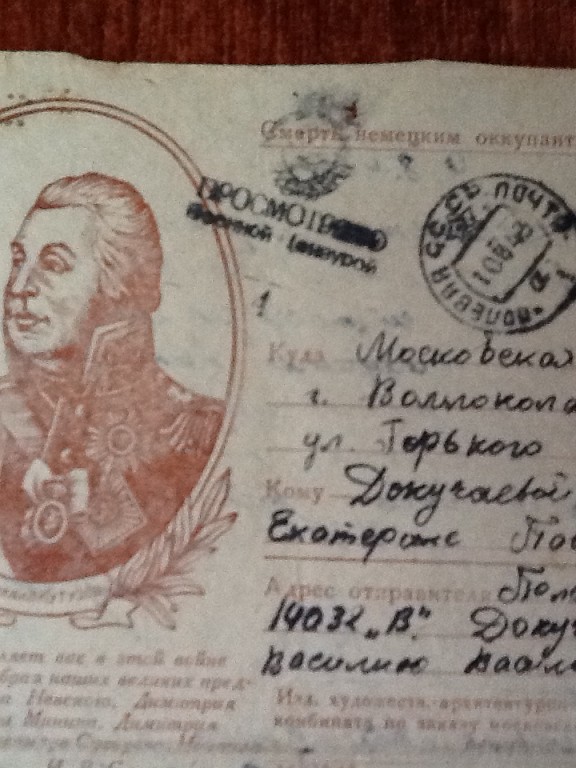 Смерть немецким оккупант
ПРОСМОТРЕНО
Военной Цензурой
ПОЛЕВАЯ ПОЧТА
1
Куда Московская
г. Волокола
ул. Горького
Кому Докучаевой
Екатерине Па
Адрес отправителя Поле
14032 „В". Докуч
Василию Васил
ляет вас в этой войне
образ наших великих пред-
Невского, Димитрия
Минина, Димитрия
Изд. художеств.-архитектурно
комбината по заказу московско